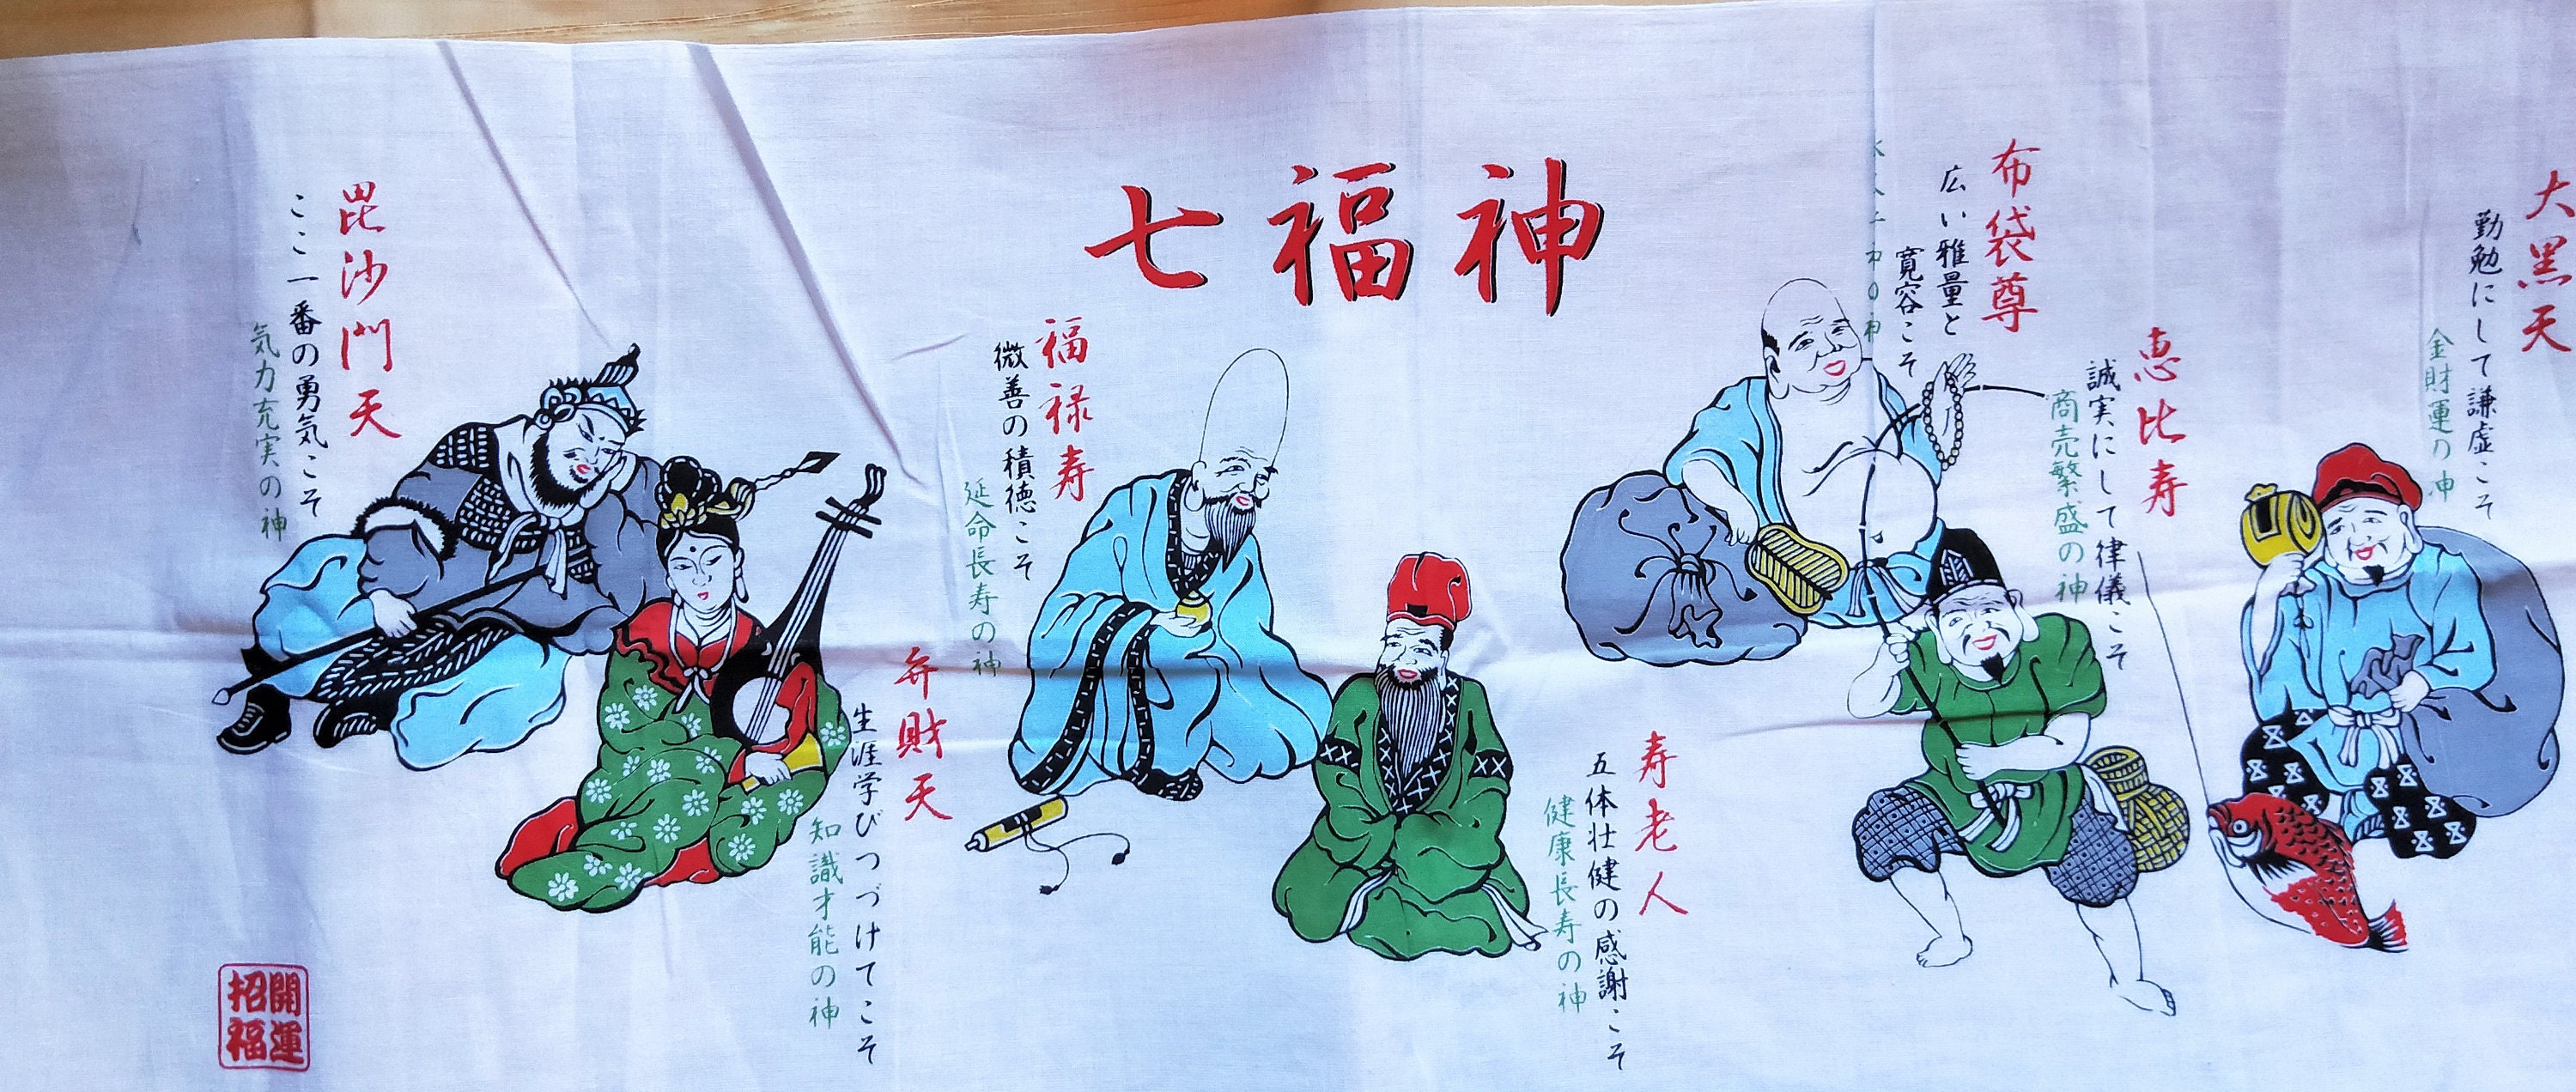 七福神
大黒天
勤勉にして謙虚こそ
金財運の神
恵比寿
誠実にして律儀こそ
商売繁盛の神
布袋尊
広い雅量と
寛容こそ
の神
寿老人
五体壮健の感謝こそ
健康長寿の神
福禄寿
微善の積徳こそ
延命長寿の神
弁財天
生涯学びつづけてこそ
知識才能の神
毘沙門天
ここ一番の勇気こそ
気力充実の神
開運
招福